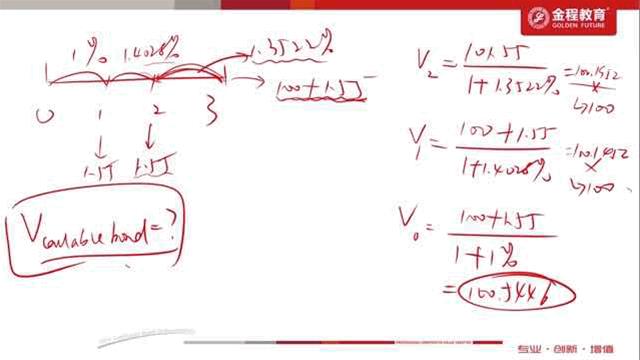 金程教育
GOLDEN FUTURE
1% 1.4028% 1.3522%
100+1.55
0 1 2 3
1.55 1.55
V callable bond = ?
V₂ = 101.55 / 1+1.3522% = 100.1952
↳100
V₁ = 100+1.55 / 1+1.4028% = 100.1452
↳100
V₀ = 100+1.55 / 1+1%
= 100.5446
专业·创新·增值